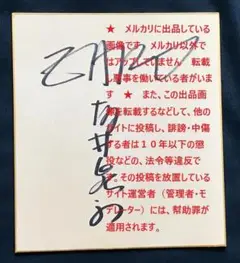 ★ メルカリに出品している
画像です メルカリ以外で
はアップしていません 転載
し 悪事を働いている者がいま
す ★ また、この出品画
像を転載するなどして、他の
サイトに投稿し、誹謗・中傷
する者は10年以下の懲
役などの、法令等違反で
す、その投稿を放置している
サイト運営者(管理者・モ
デレーター)には、幇助罪が
適用されます。
ZARD
坂井泉水